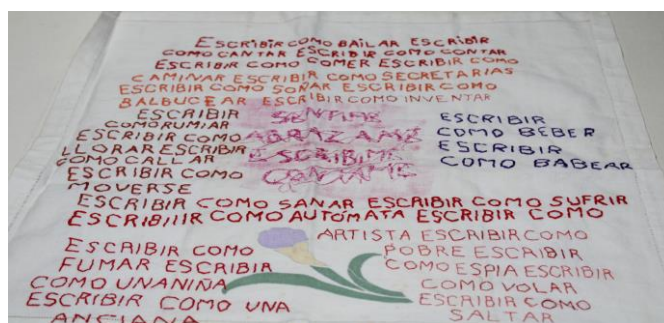 ESCRIBIR COMO BAILAR ESCRIBIR
COMO CANTAR ESCRIBIR COMO CONTAR
ESCRIBIR COMO COMER ESCRIBIR COMO
CAMINAR ESCRIBIR COMO SECRETARIAS
ESCRIBIR COMO SOÑAR ESCRIBIR COMO
BALBUCEAR ESCRIBIR COMO INVENTAR
ESCRIBIR
COMO RUMIAR
ESCRIBIR COMO
LLORAR ESCRIBIR
COMO CALLAR
ESCRIBIR COMO
MOVERSE
ABRAZAME
ESCRIBIME
ESCRIBIR
COMO BEBER
ESCRIBIR
COMO BABEAR
ESCRIBIR COMO SANAR ESCRIBIR COMO SUFRIR
ESCRIBIIIR COMO AUTÓMATA ESCRIBIR COMO
ESCRIBIR COMO
FUMAR ESCRIBIR
COMO UNA NIÑA
ESCRIBIR COMO UNA
ANCIANA
ARTISTA ESCRIBIR COMO
POBRE ESCRIBIR
COMO ESPIA ESCRIBIR
COMO VOLAR
ESCRIBIR COMO
SALTAR